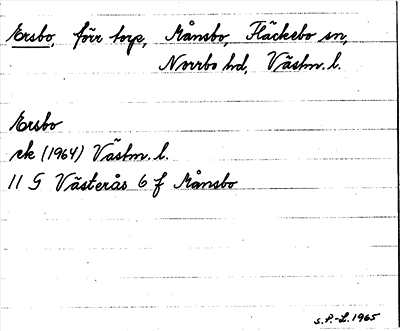 Ersbo, förr torp, Månsbo, Fläckebo sn,
Norrbo hd, Västm. l.
Ersbo
ek (1964) Västm. l.
11 G Västerås 6 f Månsbo
S.P.-L. 1965